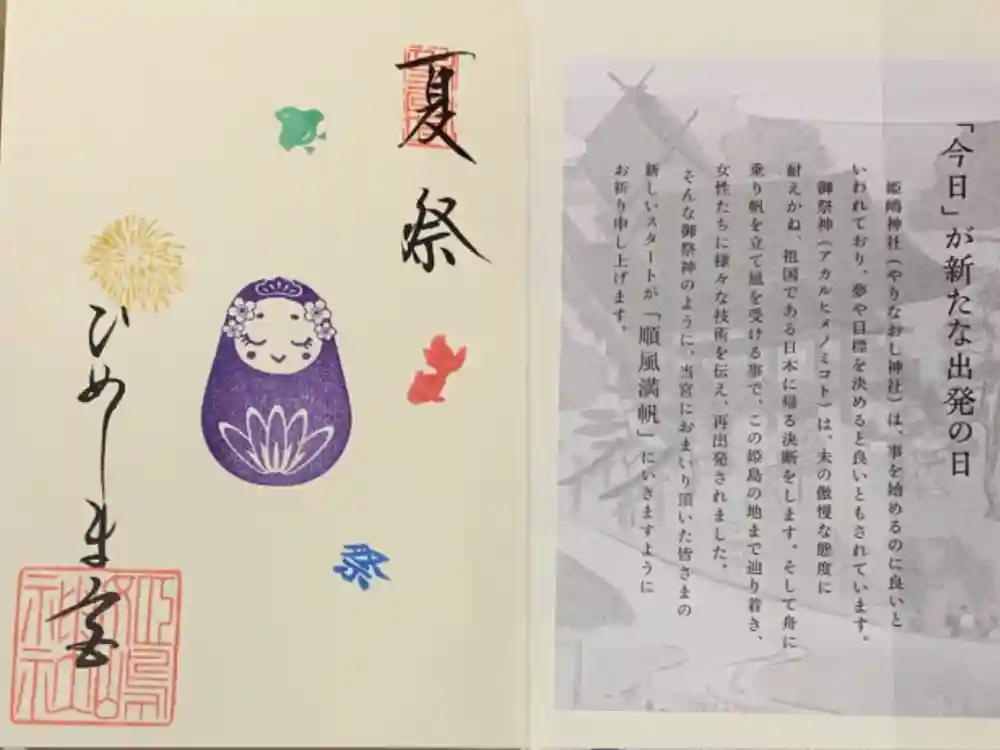 「今日」が新たな出発の日
姫嶋神社（やりなおし神社）は、事を始めるのに良いと
いわれており、夢や目標を決めると良いともされています。
御祭神（アカルヒメノミコト）は、夫の傲慢な態度に
耐えかね、祖国である日本に帰る決断をします。そして舟に
乗り帆を立て風を受ける事で、この姫島の地まで辿り着き、
女性たちに様々な技術を伝え、再出発されました。
そんな御祭神のように、当宮におまいり頂いた皆さまの
新しいスタートが「順風満帆」にいきますように
お祈り申し上げます。
夏祭
祭
ひめしま宮
姫嶋神社